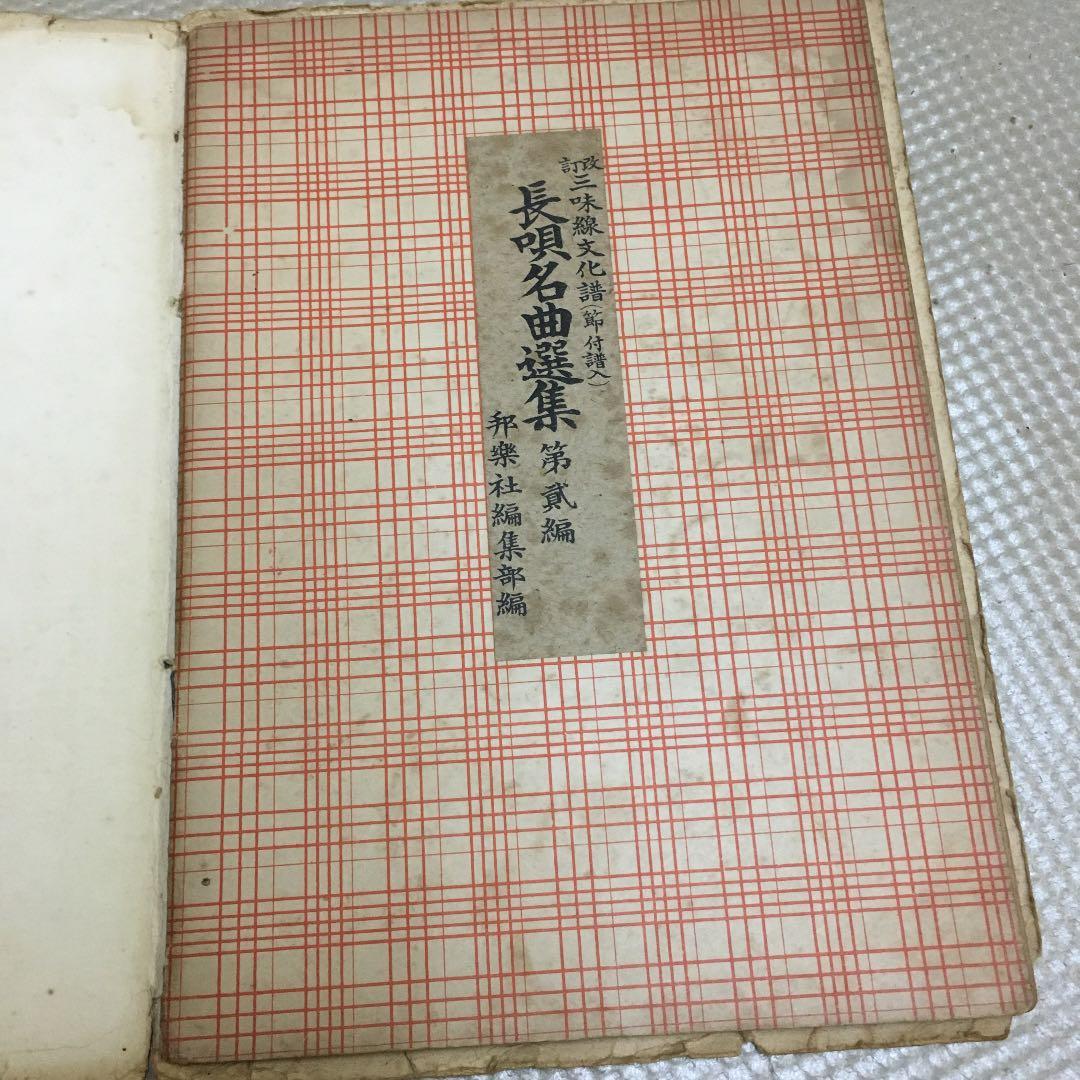 改訂三味線文化譜(節付譜入)
長唄名曲選集 第貳編
邦樂社編集部編